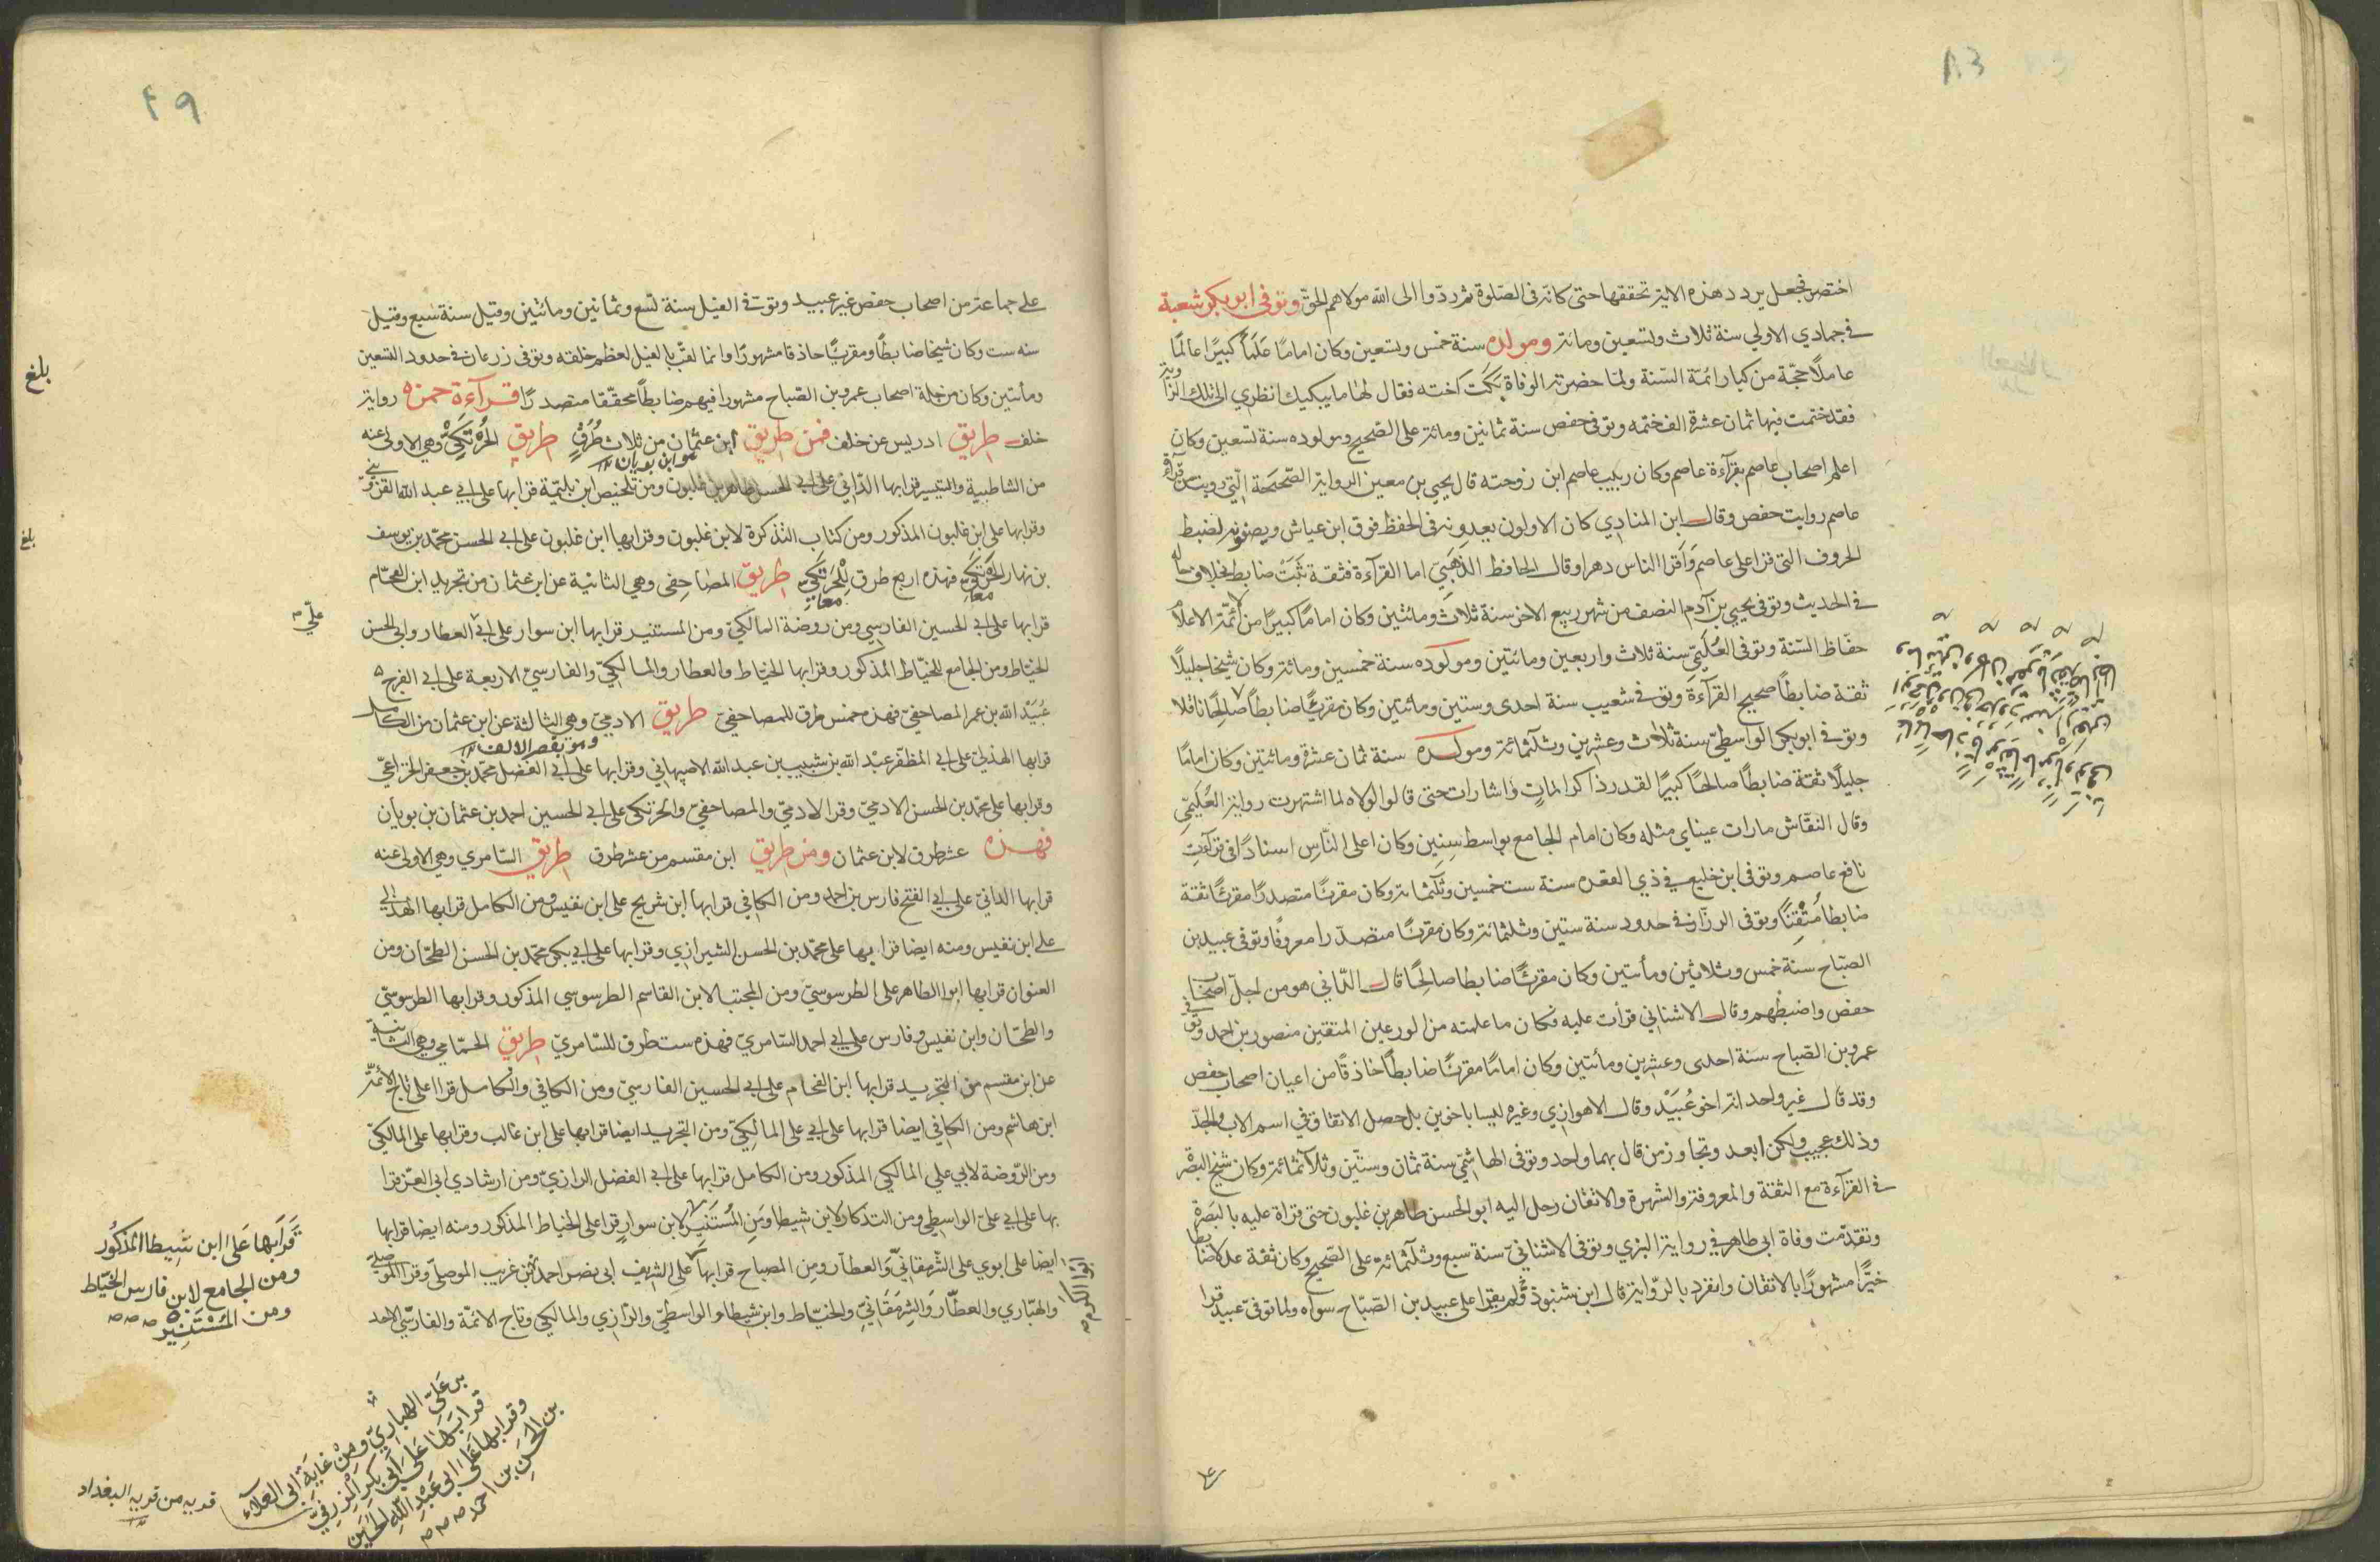 ١٠٣
اختصر فجعل يردد هذه الاية تحققها حتى كانه في الصلوة ثم ردوا الى الله مولاهم الحق وتوفى ابو بكر شعبة
في جمادي الاولي سنة ثلاث وتسعين ومائة ومولده سنة خمس وتسعين وكان اماما علما كبيرا عالما
عاملا حجة من كبار ائمة السنة ولما حضرته الوفاة بكت اخته فقال لها ما يبكيك انظري الى تلك الزاوية
فقد ختمت فيها ثمان عشرة الف ختمه وتوفى حفص سنة ثمانين ومائة على الصحيح ومولوده سنة تسعين وكان
اعلم اصحاب عاصم بقرآءة عاصم وكان ربيب عاصم ابن زوجته قال يحيي بن معين الرواية الصحيحة التي رويت من قرآءة
عاصم روايت حفص وقال ابن المنادي كان الاولون يعدونه في الحفظ فوق ابن عياش ويصفونه لضبط
الحروف التى قرا على عاصم واقرا الناس دهرا وقال الحافظ الذهبي اما القرآءة فثقة ثبت ضابط بخلاف حاله
في الحديث وتوفى يحيي بن آدم النصف من شهر ربيع الاخر سنة ثلاث ومائتين وكان اماما كبيرا من الائمة الاعلام
حفاظ السنة وتوفى العليمي سنة ثلاث واربعين ومائتين ومولوده سنة خمسين ومائة وكان شيخا جليلا
ثقة ضابطا صحيح القرآءة وتوفى شعيب سنة احدى وستين ومائتين وكان مقريا ضابطا صالحا ناقلا
وتوفى ابو بكر الواسطي سنة ثلاث وعشرين وثلثمائة ومولده سنة ثمان عشرة ومائتين وكان اماما
جليلا ثقة ضابطا صالحا كبيرا القدر ذا كرامات واشارات حتى قالوا لولاه لما اشتهرت رواية العليمي
وقال النقاش ما رات عيناي مثله وكان امام الجامع بواسط سنين وكان اعلى الناس اسنادا في قرآءت
نافع عاصم وتوفى ابن خليع في ذي القعده سنة ست خمسين وثلثمائة وكان مقريا متصدرا مقريا ثقة
ضابطا متقنا وتوفى الرزاز في حدود سنة ستين وثلثمائة وكان مقريا متصدرا معروفا وتوفى عبيد بن
الصباح سنة خمس وثلاثين ومأتين وكان مقريا ضابطا صالحا قال الداني هو من اجل اصحاب
حفص واضبطهم وقال الاشناني قرأت عليه فكان ما علمته من الورعين المتقين منصور بن احمد وتوفي
عمرو بن الصباح سنة احدى وعشرين ومأتين وكان اماما مقريا ضابطا حاذقا من اعيان اصحاب حفص
وقد قال غير واحد انه اخو عبيد وقال الاهوازي وغيره ليسا باخوين بل حصل الاتفاق في اسم الاب والجد
وذلك عجيب ولكن ابعد وتجاوز من قال بهما واحد وتوفى الهاشمي سنة ثمان وستين وثلاثمائة وكان شيخ البصرة
في القرآءة مع الثقة والمعروفة والشهرة والاتقان رحل اليه ابو الحسن طاهر بن غلبون حتى قراة عليه بالبصرة
وتقدمت وفاة ابي طاهر في رواية البزي وتوفى الاشناني سنة سبع وثلثمائة على الصحيح وكان ثقة عدلا ضابطا
خيرا مشهورا بالاتقان وانفرد بالرواية قال ابن شنبوذ ولم يقرا على عبيد بن الصباح سواه ولما توفى عبيد قرا
٢٩
على جماعة من اصحاب حفص غير عبيد وتوفى الفيل سنة تسع وثمانين ومائتين وقيل سنة سبع وقيل
سنه ست وكان شيخا ضابطا ومقريا حاذقا مشهورا وانما لقب بالفيل لعظم خلقه وتوفى زرعان في حدود التسعين
ومأتين وكان من جلة اصحاب عمرو بن الصباح مشهورا فيهم ضابطا محققا متصدرا قرآءة حمزه رواية
خلف طريق ادريس عن خلف فمن طريق ابن عثمان من ثلاث طرق طريق الحرتكي وهي الاولى عنه
هو ابن بويان
من الشاطبية والتيسير قرا بها الداني على ابي الحسن طاهر بن غلبون ومن تلخيص ابن بليمة قرا بها على ابي عبد الله القزويني
وقرا بها على ابن غلبون المذكور ومن كتاب التذكرة لابن غلبون وقرا بها ابن غلبون على ابي الحسن محمد بن يوسف
بن نهار الحرتكي فهذه اربع طرق للحرتكي طريق المصاحفى وهي الثانية عن ابن عثمان من تجريد ابن الفحام
قرا بها على ابي الحسين الفارسي ومن روضة المالكي ومن المستنير قرا بها ابن سوار على ابي العطار وابي الحسن
الخياط ومن الجامع للخياط المذكور وقرا بها الخياط والعطار والمالكي والفارسي الاربعة على ابي الفرج
عبيد الله بن عمر المصاحفي فهذه خمس طرق للمصاحفي طريق الادمي وهي الثالثة عن ابن عثمان من الكامل
قرا بها الهذلي على ابي المظفر عبد الله بن شبيب بن عبد الله الاصبهاني وقرا بها على ابي الفضل محمد بن جعفر الخزاعي
وقرا بها على محمد بن الحسن الادمي وقرا الادمي والمصاحفي والحرتكى على ابي الحسين احمد بن عثمان بن بويان
فهذه عشر طرق لابن عثمان ومن طريق ابن مقسم من عشر طرق طريق السامري وهي الاولى عنه
قرا بها الداني على ابي الفتح فارس بن احمد ومن الكافي قرا بها ابن شريح على ابن نفيس ومن الكامل قرا بها الهذلي
على ابن نفيس ومنه ايضا قرا بها على محمد بن الحسن الشيرازي وقرا بها على ابي بكر محمد بن الحسن الطحان ومن
العنوان قرا بها ابوا الطاهر على الطرسوسي ومن المجتبا لابن القاسم الطرسوسي المذكور وقرا بها الطرسوسي
والطحان وابن نفيس وفارس على ابي احمد السامري فهذه ست طرق للسامري طريق الحمامي وهي الثانية
عن ابن مقسم من التجريد قرا بها ابن الفحام على ابي الحسين الفارسي ومن الكافي والكامل قرا على تاج الائمة
ابن هاشم ومن الكافي ايضا قرا بها على ابي على المالكي ومن التجريد ايضا قرا بها على ابن غالب وقرا بها على المالكي
ومن الروضة لابي علي المالكي المذكور ومن الكامل قرا بها على ابي الفضل الرازي ومن ارشادي ابي العز قرا
بها على ابي على الواسطي ومن التذكار لابن شيطا ومن المستنير لابن سوار قرا على الخياط المذكور ومنه ايضا قرا بها
ايضا على ابوي على الشرمقاني والعطار ومن المصباح قرا بها على الشريف ابى نصر احمد بن غريب الموصلي وقرا الموصلي
والهباري والعطار والشرمقاني والخياط وابن شيطا والواسطي والرازي والمالكي وتاج الائمة والفارسي الاحد
بلغ
بلغ
على
قرا بها على ابن شيطا المذكور
ومن الجامع لابن فارس الخياط
ومن المستنير
بن على الهباري ومن غاية ابى العلاء
قرا بها على ابى بكر المزرفي
وقرا بها على ابى عبد الله الحسين
بن الحسن بن احمد
قريه من قريه البغداد